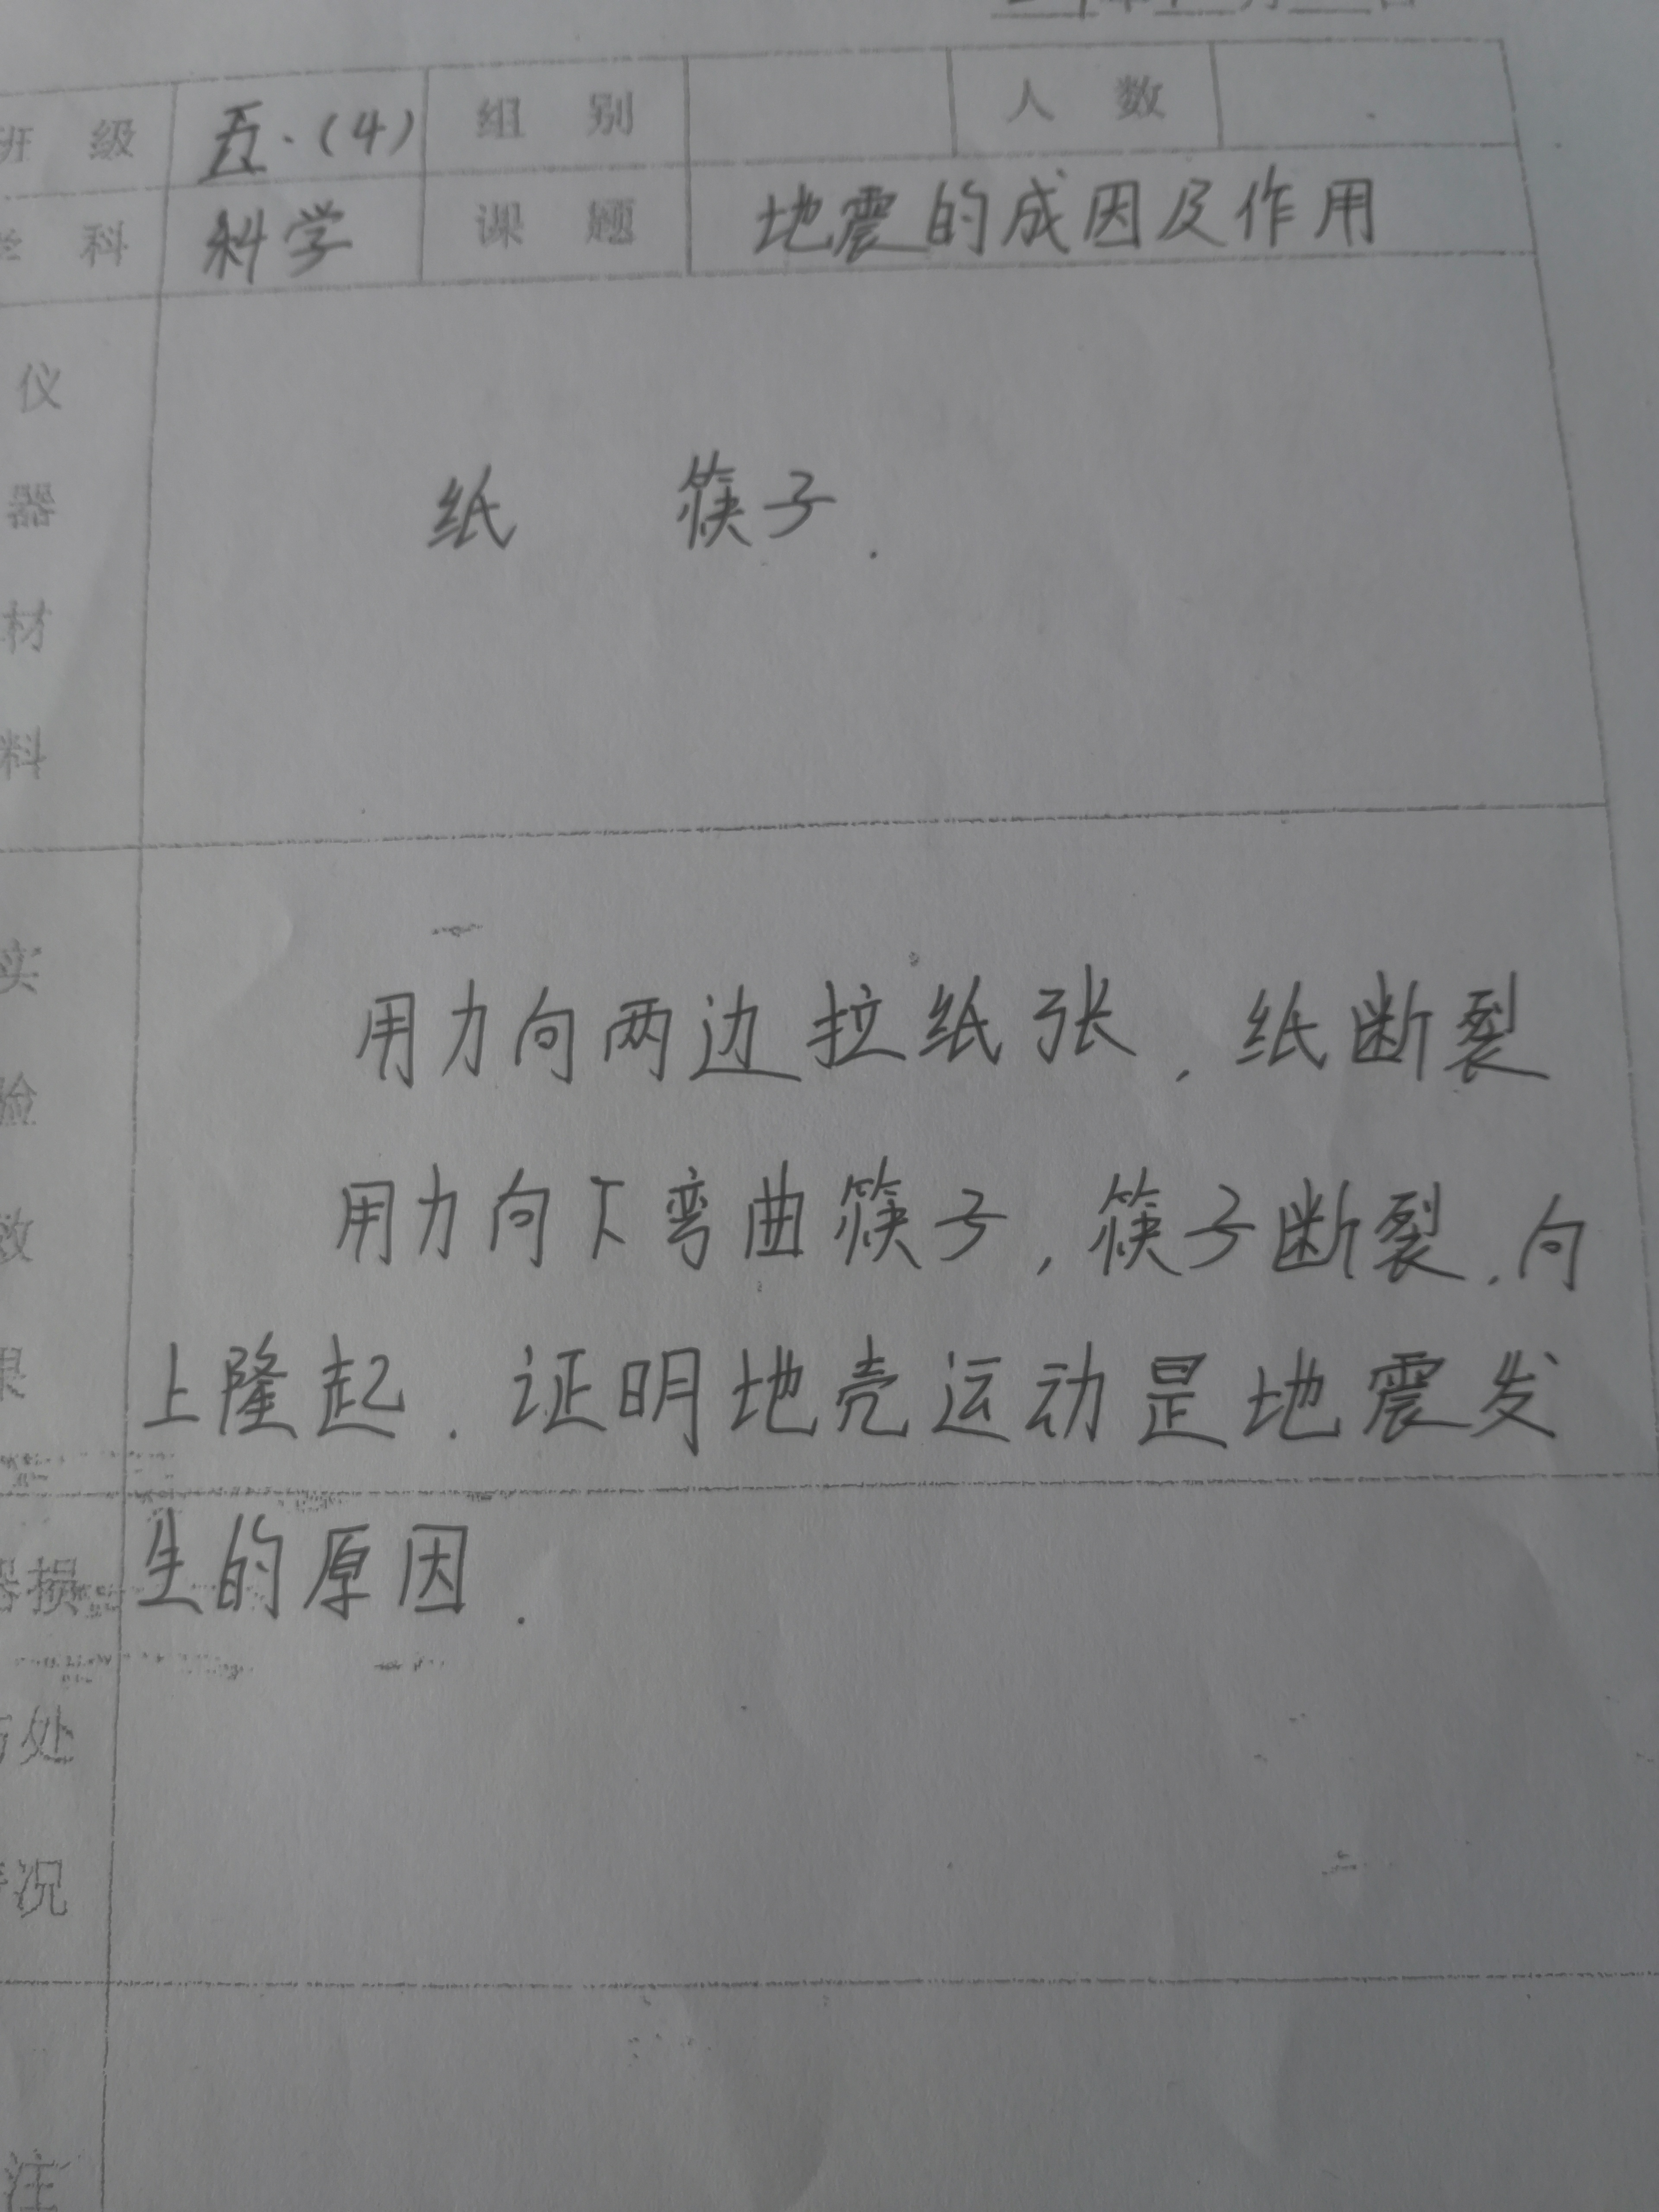 班 级 五.(4) 组 别 人 数
科 科学 课 题 地震的成因及作用
仪
器
材
料
纸 筷子.
实
验
效
果
用力向两边拉纸张,纸断裂
用力向下弯曲筷子,筷子断裂,向
上隆起.证明地壳运动是地震发
生的原因.
器损
处
情况
注